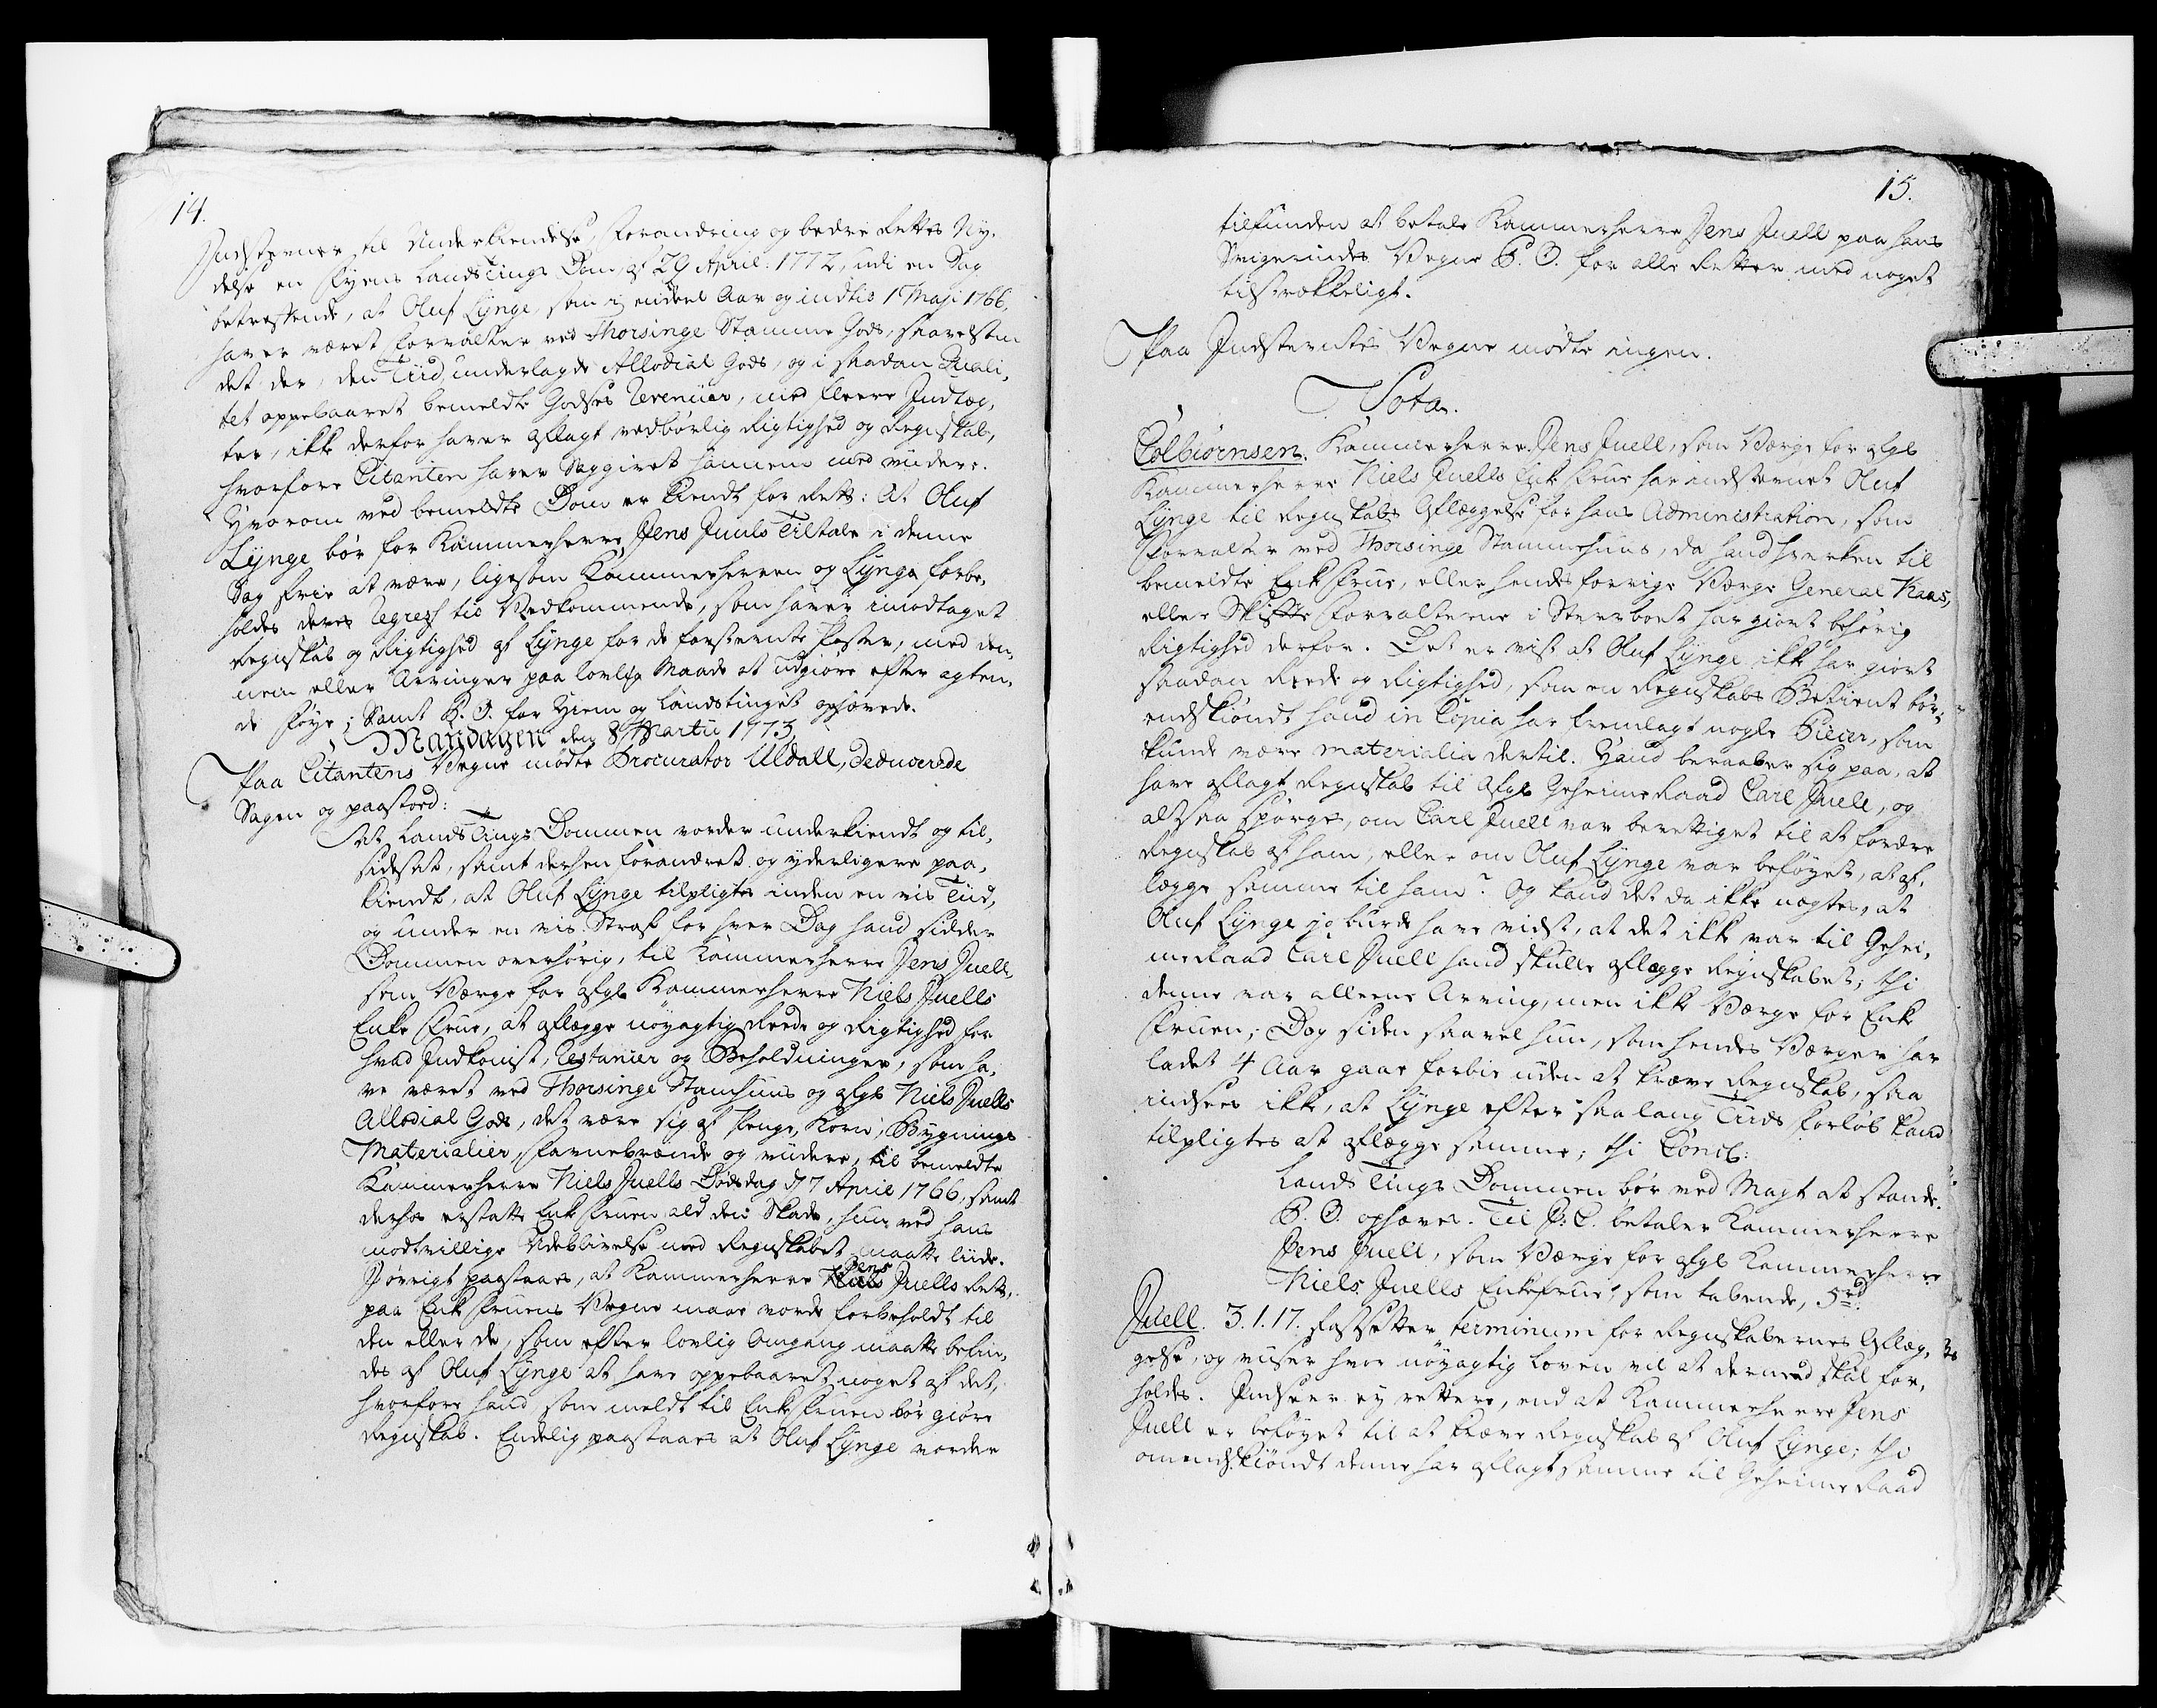 14.
Indstevner til Underkiendelse, Forandring og bedre Rettes Ny,
delse en Fyens Landstings Dom af 29 April. 1772, udi en Sag
betreffende, at Oluf Lÿnge, som i endeel Aar og indtil 1 Maji 1766.
haver været Forvalter ved Thorsinge Stamme Gods, saavelsom
det der, den Tiid, underlagde Allodial Gods, og i saadan Quali,
tet oppebaaret bemeldte Godses Revenüer, med fleere Indtæg,
ter, ikke derfor haver aflagt vedbørlig Rigtighed og Regnskab,
hvorfore Citanten haver Saggivet hannem med videre.
Hvorom ved bemeldte Dom er kiendt for Rett: At Oluf
Lÿnge bør for Kammerherre Jens Juuls Tiltale i denne
Sag frie at være, ligesom Kammerherren og Lÿnge forbe,
holdes deres Regress til Vedkommende, som haver imodtaget
Regnskab og Rigtighed af Lÿnge for de forstevnte Poster, med den,
nem eller Arvinger paa lovlig Maade at udgiøre efter agten,
de Føye; Samt K. O. for Hiem og Landstinget ophævede.
Mandagen den 8 Martii 1773,
Paa Citantens Vegne mødte Procurator Uldall, deducerede
Sagen og paastod:
At LandsTings Dommen vorder underkiendt og til,
sidesat, samt derhen forandret og yderligere paa,
kiendt, at Oluf Lÿnge tilpligtes inden en vis Tiid,
og under en vis Straf for hver Dag hand sidder
Dommen overhørig, til Kammerherre Jens Juell,
som Værge for afgl Kammerherre Niels Juells
Enke Frue, at aflægge nøyagtig Reede og Rigtighed for
hvad Indkomst, Restancer og Beholdninger, som ha,
ve været ved Thorsinge Stamhuus og afgl Niels Juells
Allodial Gods, det være sig af Penge, Korn, Bygnings
Materialier, Favnebrænde og videre, til bemeldte
Kammerherre Niels Juells Dødsdag d 7 April 1766, samt
derhos erstatte Enke Fruen ald den Skade, hun ved hans
modtvillige Udeblivelse med Regnskabet maatte liide.
I øvrigt paastaaes, at Kammerherre Jens Juells Rett,
paa Enke Fruens Vegne maae vorde forbeholdt til
den eller de, som efter lovlig Omgang maatte befin,
des af Oluf Lÿnge at have oppebaaret noget af det,
hvorfore hand som meldt til Enke Fruen bør giøre
Regnskab. Endelig paastaaes at Oluf Lÿnge vorder
15.
tilfunden at betale Kammerherre Jens Juell paa hans
Svigerindes Vegne P. O. for alle Retter med noget
tilstrækkeligt.
Paa Indstevntes Vegne mødte ingen.
Vota.
Colbiørnsen. Kammerherre Jens Juell, som Værge for afgl
Kammerherre Niels Juells Enke Frue har indstevnet Oluf
Lÿnge til Regnskabs Aflæggelse for hans Administration, som
Forvalter ved Thorsinge Stammehuus, da hand hverken til
bemeldte Enke Frue, eller hendes forrige Værge General Kaas,
eller Skifte Forvalterne i Sterboet har giort behørig
Rigtighed derfor. Det er vist at Oluf Lÿnge ikke har giort
saadan Reede og Rigtighed, som en Regnskabs Betient bør,
endskiøndt hand in Copia har fremlagt nogle Piecer, som
kunde være materialia dertil. Hand beraaber sig paa, at
have aflagt Regnskab til Afgl Geheime Raad Carl Juell, og
altsaa spørges, om Carl Juell var berettiget til at fordre
Regnskab af ham, eller om Oluf Lÿnge var beføyet, at af,
lægge samme til ham? Og kand det da ikke nægtes, at
Oluf Lÿnge jo burde have vidst, at det ikke var til Gehei,
me Raad Carl Juell hand skulle aflægge Regnskabet; thi
denne var alleene Arving, men ikke Værge for Enke
Fruen; Dog siden saavel hun, som hendes Værger har
ladet 4 Aar gaae forbie uden at kræve Regnskab, saa
indsees ikke, at Lÿnge efter saa lang Tiids Forløb kand
tilpligtes at aflægge samme; thi Concl:
Lands Tings Dommen bør ved Magt at stande.
P. O. ophæves. Til J: C. betaler Kammerherre
Jens Juell, som Værge for afgl Kammerherre
Niels Juells Enkefrue, som tabende, 5 rd.
Juell. 3. 1. 17. fastsetter terminum for Regnskabernes Aflæg,
gelse, og viiser hvor nøyagtig Loven vil at dermed skal for,
holdes. Indseer ey rettere, end at Kammerherre Jens
Juell er beføyet til at kræve Regnskab af Oluf Lÿnge; thi
omendskiøndt denne har aflagt samme til Geheime Raad